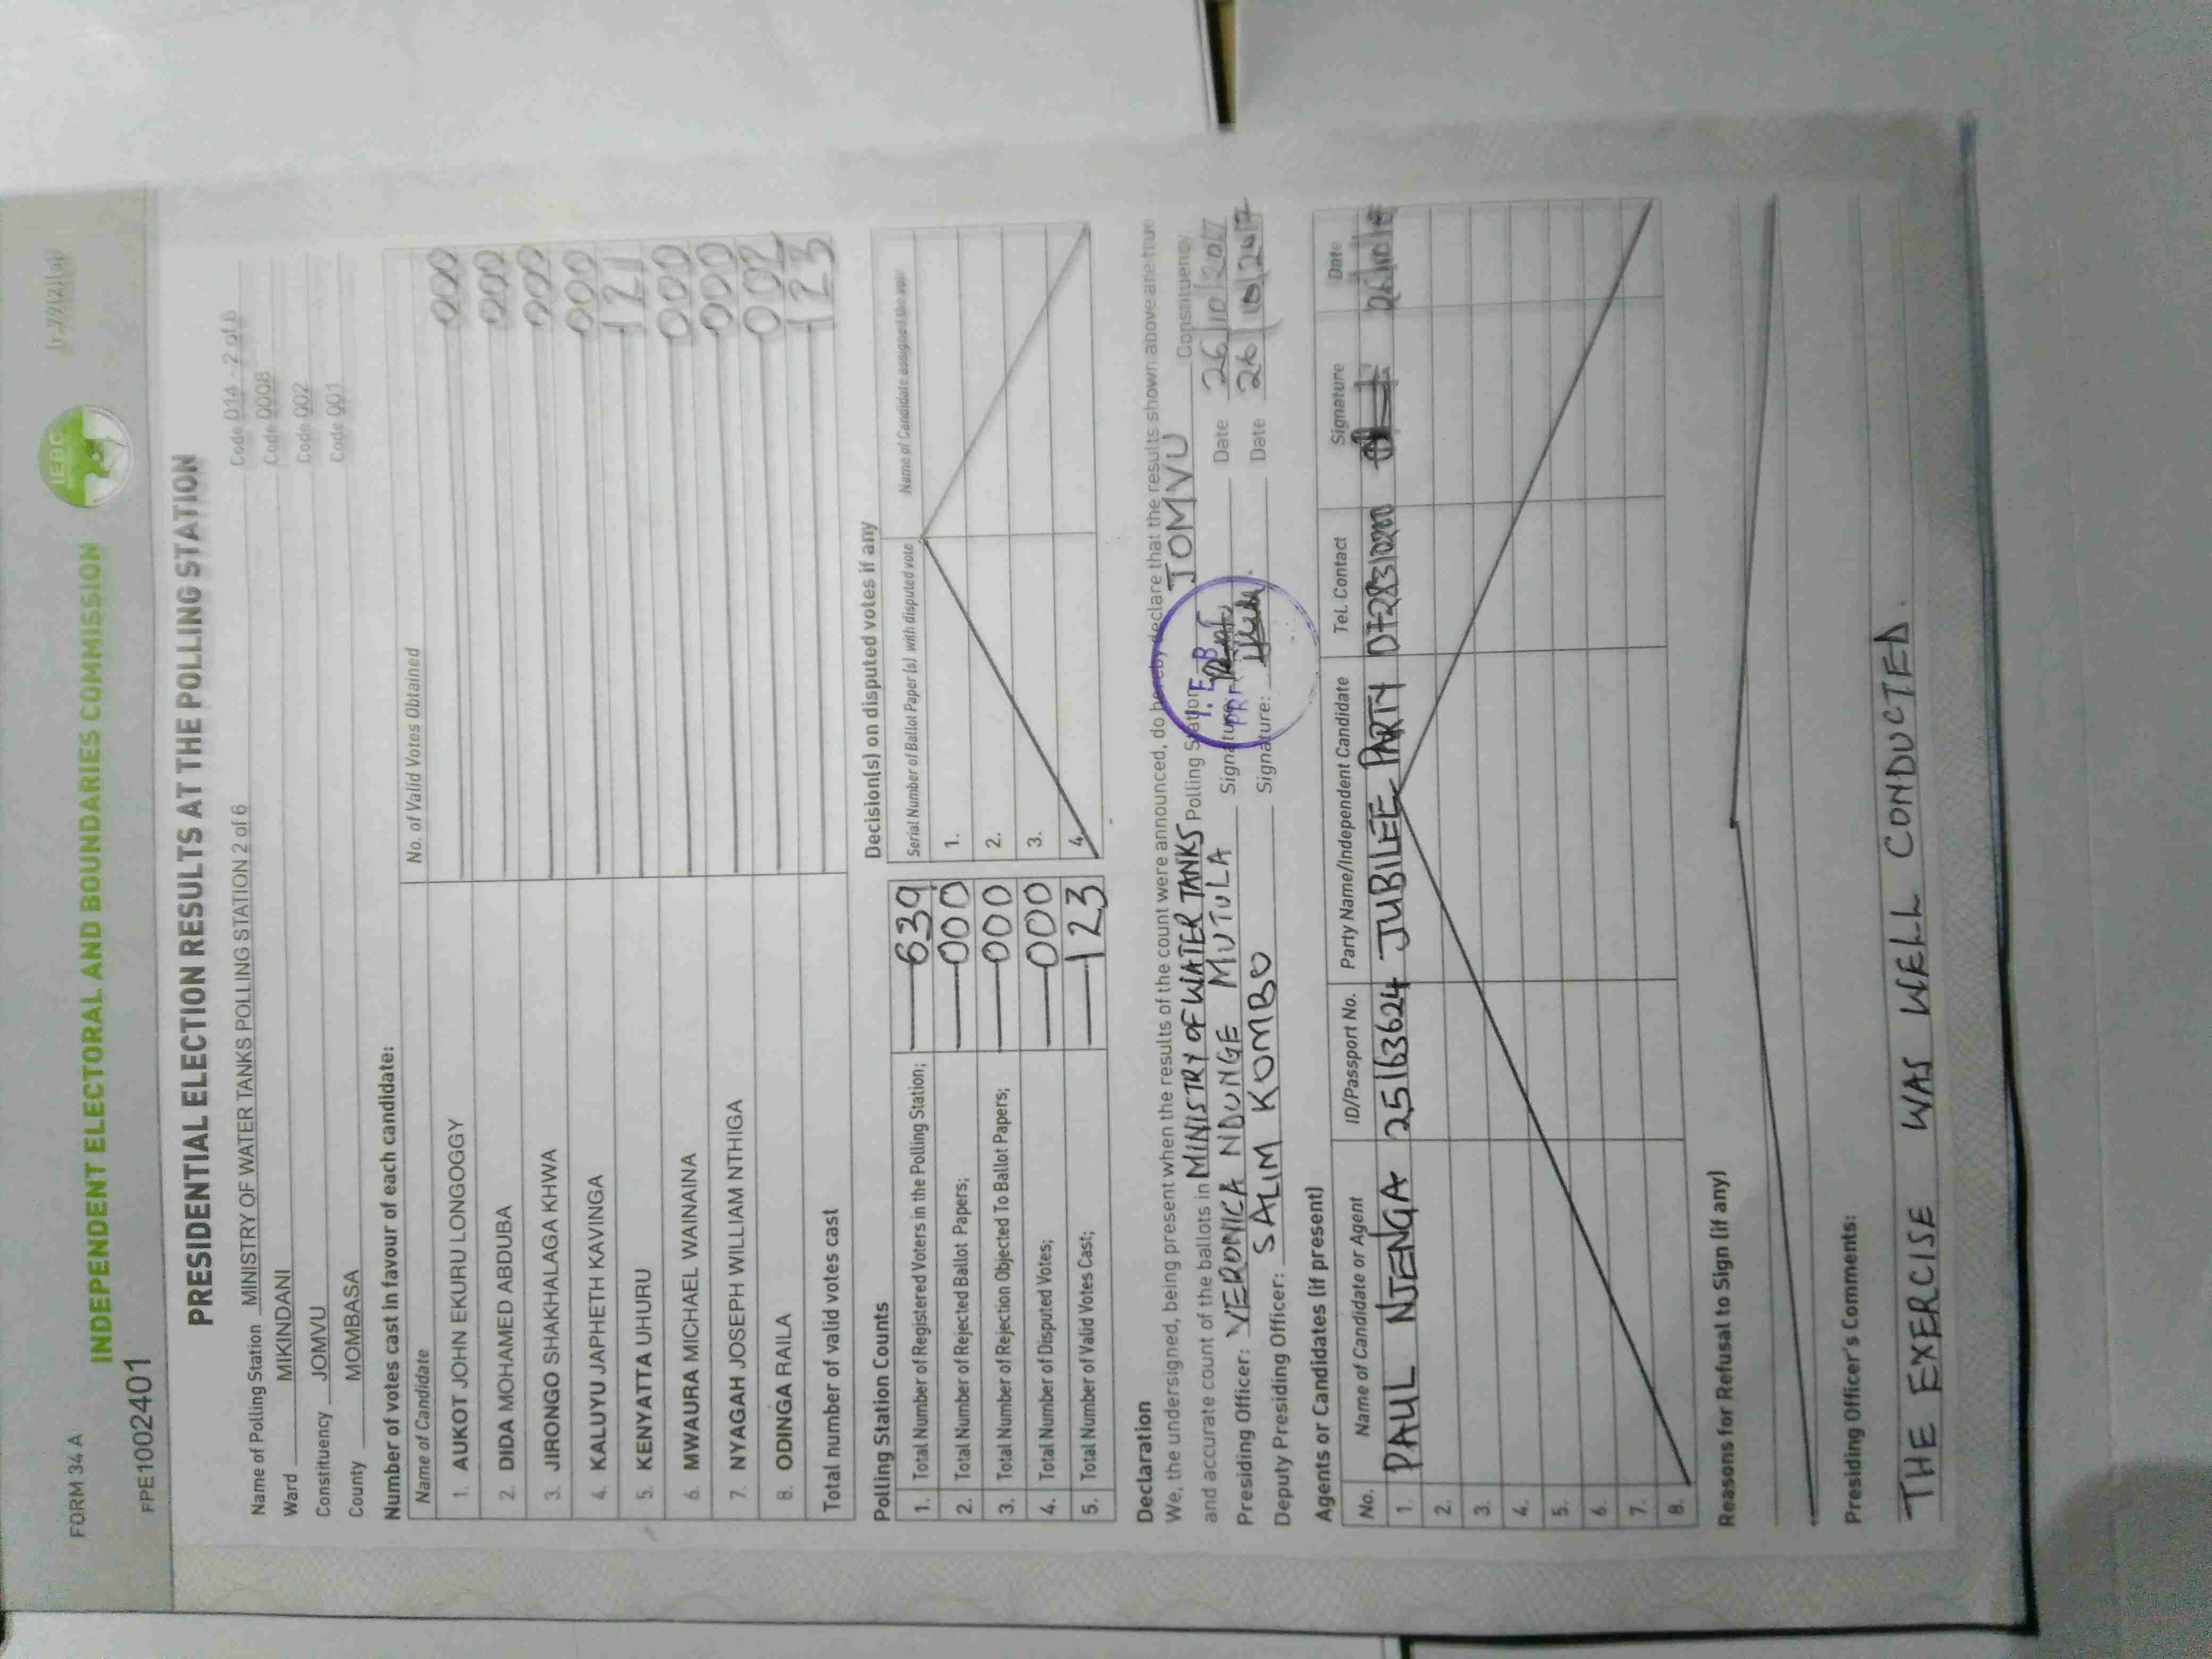 FORM 34 A
(r.72(2)(a))
INDEPENDENT ELECTORAL AND BOUNDARIES COMMISSION
IEBC
FPE1002401
PRESIDENTIAL ELECTION RESULTS AT THE POLLING STATION
Name of Polling Station MINISTRY OF WATER TANKS POLLING STATION 2 of 6 Code 014 - 2 of 6
Ward MIKINDANI Code 0008
Constituency JOMVU Code 002
County MOMBASA Code 001
Number of votes cast in favour of each candidate:
Name of Candidate No. of Valid Votes Obtained
1. AUKOT JOHN EKURU LONGOGGY 000
2. DIDA MOHAMED ABDUBA 000
3. JIRONGO SHAKHALAGA KHWA 000
4. KALUYU JAPHETH KAVINGA 000
5. KENYATTA UHURU 121
6. MWAURA MICHAEL WAINAINA 000
7. NYAGAH JOSEPH WILLIAM NTHIGA 000
8. ODINGA RAILA 002
Total number of valid votes cast 123
Polling Station Counts
1. Total Number of Registered Voters in the Polling Station; 639
2. Total Number of Rejected Ballot Papers; 000
3. Total Number of Rejection Objected To Ballot Papers; 000
4. Total Number of Disputed Votes; 000
5. Total Number of Valid Votes Cast; 123
Decision(s) on disputed votes if any
Serial Number of Ballot Paper (s) with disputed vote Name of Candidate assigned the vote
1.
2.
3.
4.
Declaration
We, the undersigned, being present when the results of the count were announced, do hereby declare that the results shown above are true
and accurate count of the ballots in MINISTRY OF WATER TANKS Polling Station JOMVU Constituency.
Presiding Officer: VERONICA NDUNGE MUTULA Signature: Date 26/10/2017
Deputy Presiding Officer: SALIM KOMBO Signature: Date 26/10/2017
Agents or Candidates (if present)
No. Name of Candidate or Agent ID/Passport No. Party Name/Independent Candidate Tel. Contact Signature Date
1. PAUL NJENGA 25163624 JUBILEE PARTY
2.
3.
4.
5.
6.
7.
8.
Reasons for Refusal to Sign (if any)
Presiding Officer's Comments:
THE EXERCISE WAS WELL CONDUCTED.